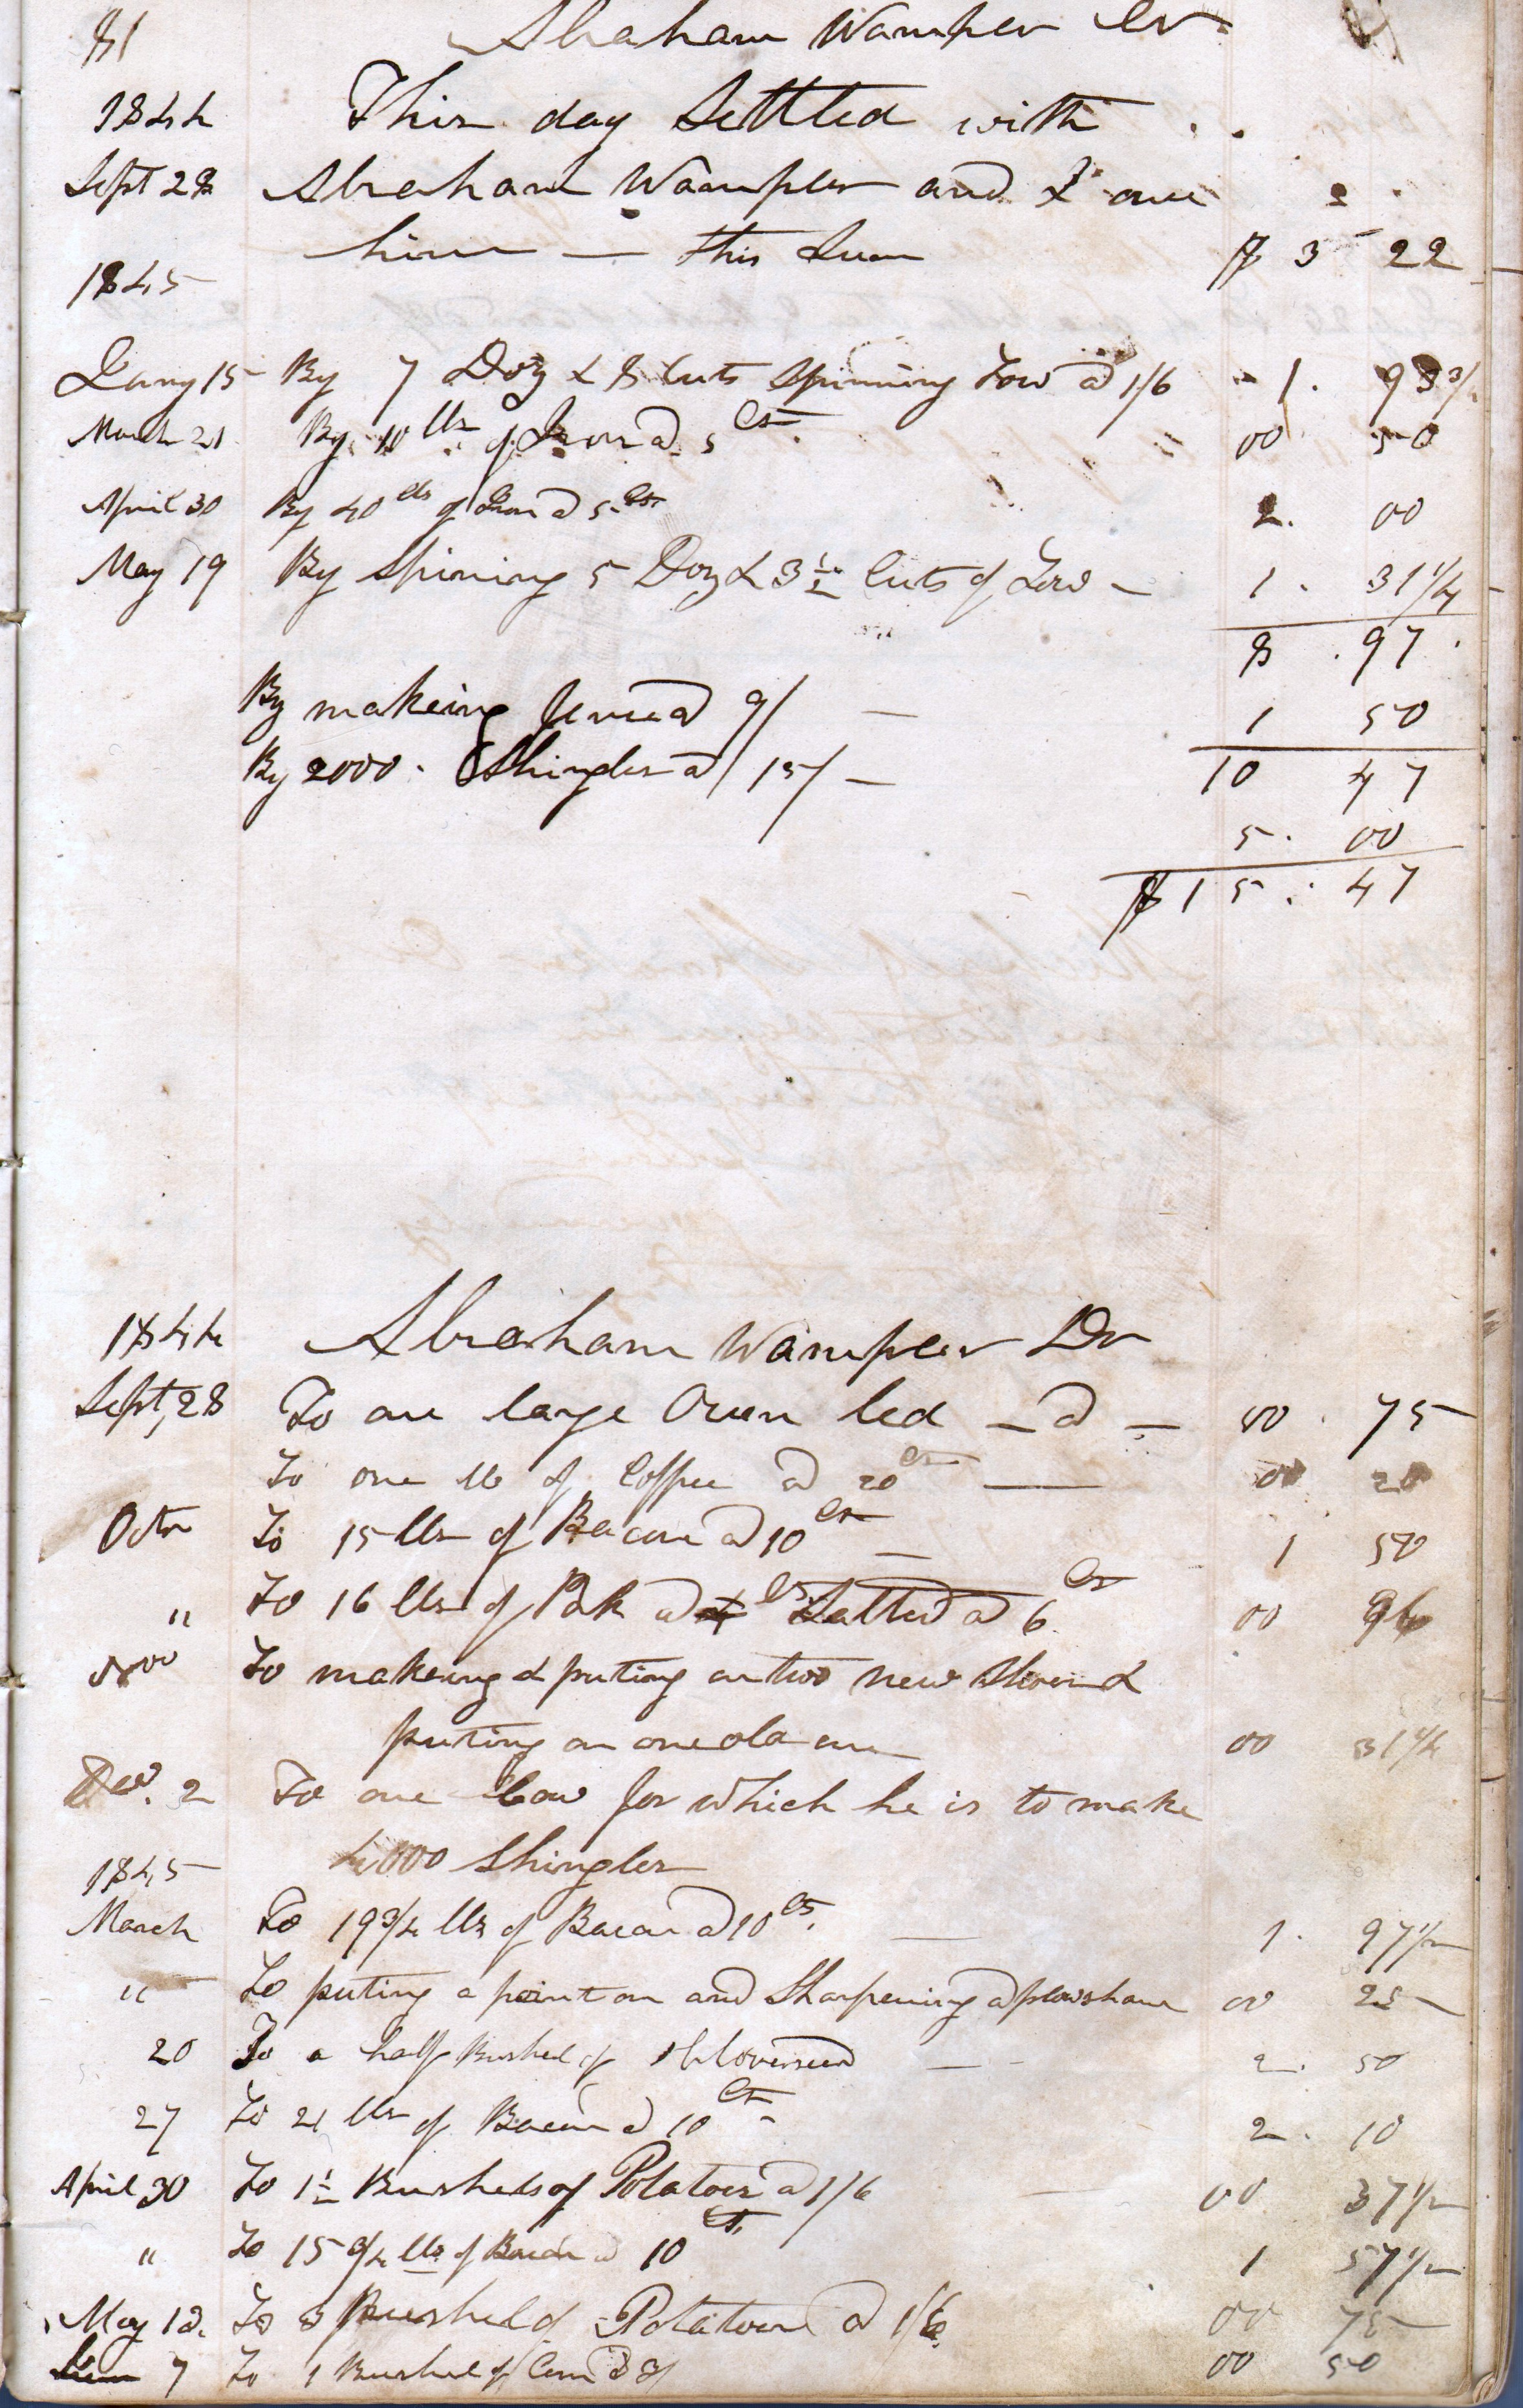 81 Abraham Wampler Cr
1844 This day Settled with
Sept 28 Abraham Wampler and I owe
him — this Sum $ 3 22
1845
Jany 15 By 7 Doz & 8 Cuts Spinning Tow @ 1/6 1. 93 3/4
March 21 By 10 lbs of Iron @ 5 Cts 00 50
April 30 By 40 lbs of Iron @ 5 Cts 2. 00
May 19 By Spining 5 Doz & 3 1/2 Cuts of Tow — 1. 31 1/4
8. 97
By makeing fence @ 9/ — 1 50
By 2000 Shingles @ 15/ — 10 47
5. 00
$ 15. 47
1844 Abraham Wampler Dr
Sept, 28 To one large Oven led — @ — 00. 75
To one lb of Coffee @ 20 Cts — 00 20
Octr To 15 lbs of Bacon @ 10 Cts — 1 50
" To 16 lbs of Pork @ Cts Salted @ 6 Cts 00 96
Nov To makeing & puting on two new Shoes &
puting on one old one 00 31 1/4
Dec. 2 To one Cow for which he is to make
1845 4000 Shingles
March To 19 3/4 lbs of Bacon @ 10 Cts. — 1. 97 1/2
" To puting a point on and Sharpening a plowshare 00 25
20 To a half Bushel of Cloverseed — 2. 50
27 To 21 lbs of Bacon @ 10 Cts 2. 10
April 30 To 1 1/2 Bushels of Potatoes @ 1/6 — 00 37 1/2
" To 15 3/4 lbs of Bacon @ 10 Cts. 1 57 1/2
May 12. To 3 Bushel of Potatoes @ 1/6 00 75
7 To 1 Bushel of Corn @ 3/ 00 50